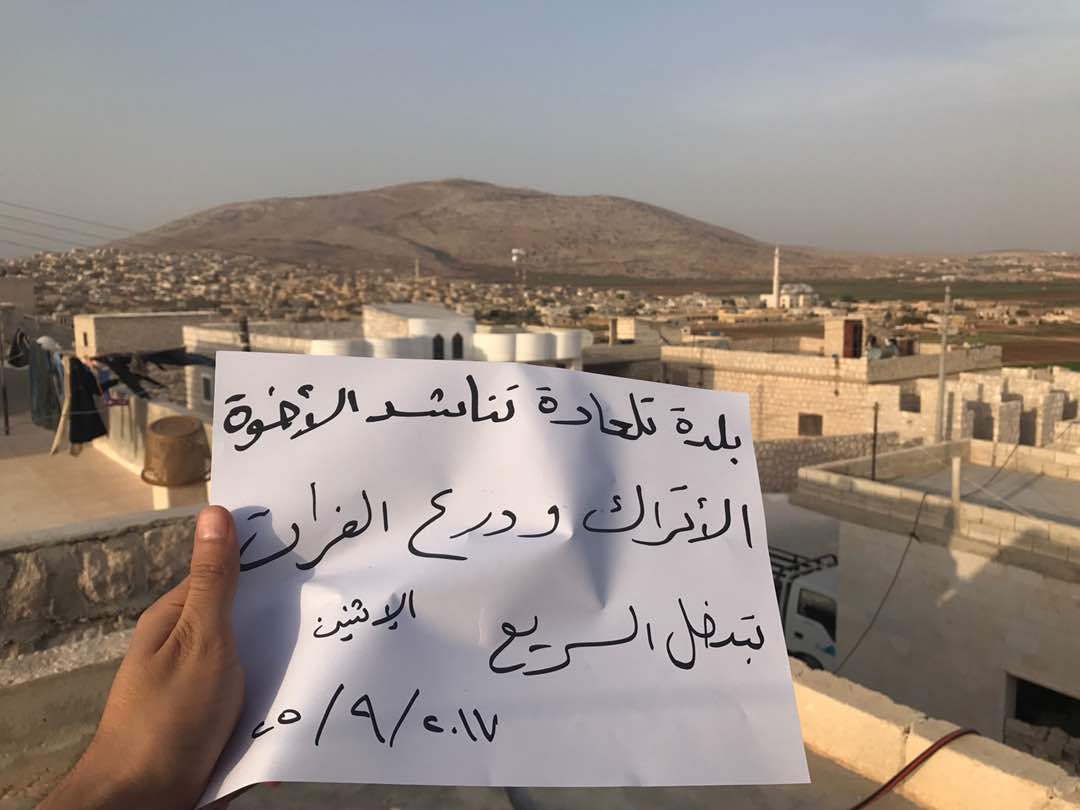 بلدة تلعادة تناشد الأخوة
الأتراك ودرع الفرات
بتدخل السريع
الإثنين
٢٥/٩/٢٠١٧